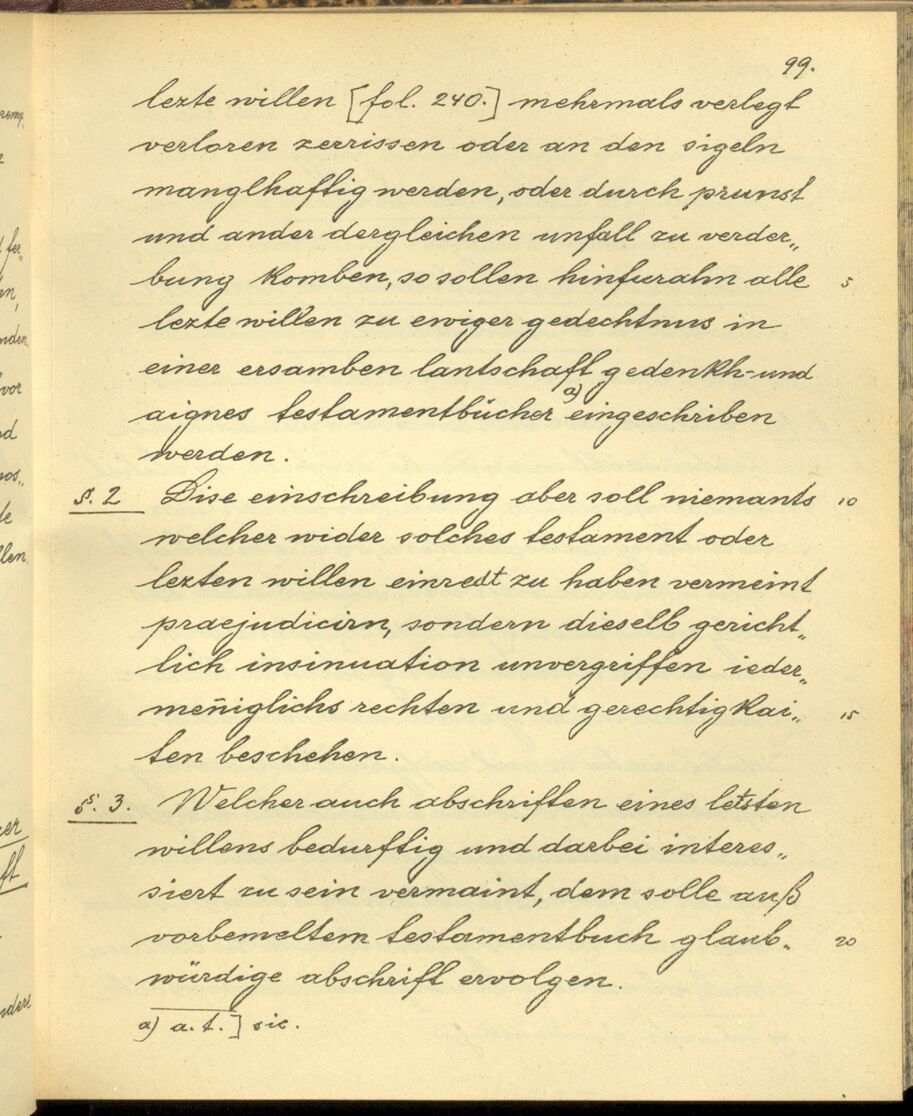 99.
lezte willen [fol. 240.] mehrmals verlegt
verloren zerrissen oder an den sigeln
manglhaftig werden, oder durch prunst
und ander dergleichen unfall zu verder„
bung komben, so sollen hinfurahn alle 5
lezte willen zu ewiger gedechtnus in
einer ersamben lantschaft gedenkh- und
aignes testamentbücher a) eingeschriben
werden.
§. 2 Dise einschreibung aber soll niemants 10
welcher wider solches testament oder
lezten willen einredt zu haben vermeint
praejudicirn, sondern dieselb gericht„
lich insinuation unvergriffen ieder„
meñiglichs rechten und gerechtigkai„ 15
ten beschehen.
§. 3. Welcher auch abschriften eines letsten
willens bedurftig und darbei interes„
siert zu sein vermaint, dem solle auß
vorbemeltem testamentbuch glaub„ 20
würdige abschrift ervolgen.
a) a. t.] sic.
remp.
fer„
en,
nden
vor
d
os„
le
llen.
er
ft
nders